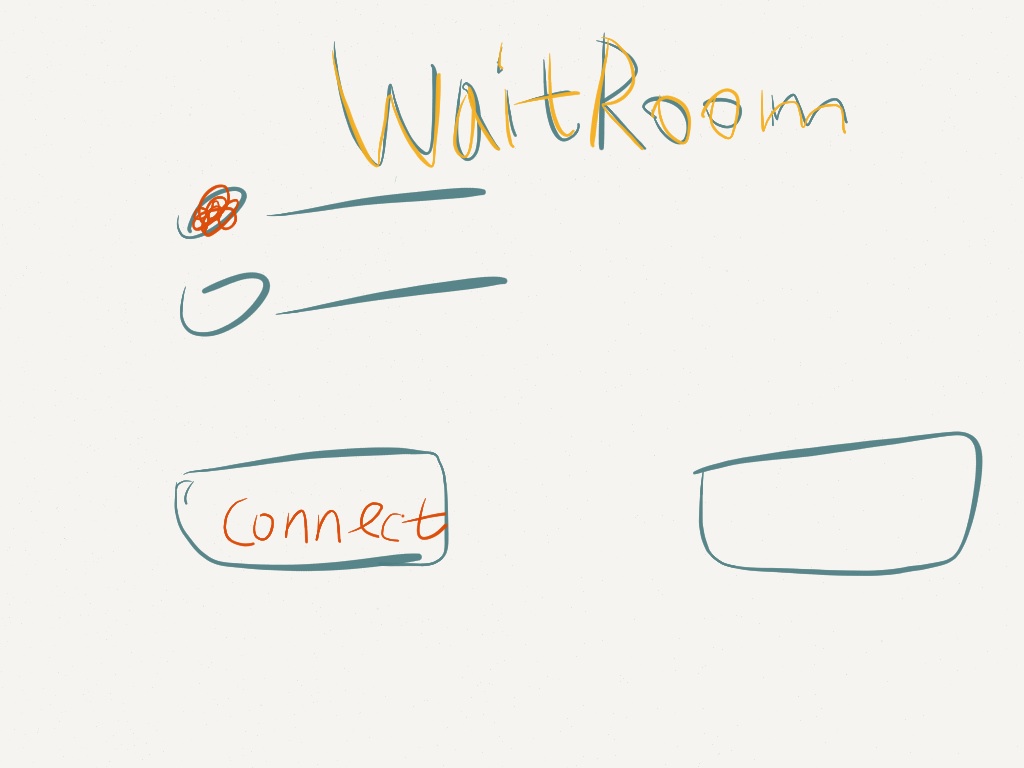 WaitRoom
Connect